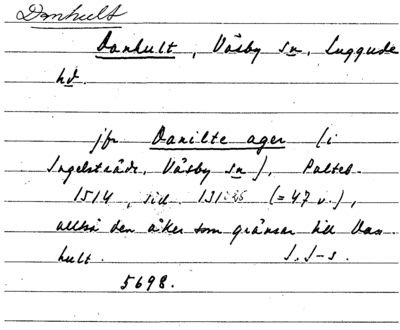 Danhult
Danhult, Väsby sn, Luggude
hd.
jfr Danilte ager (i
Ingelsträde, Väsby sn), Palteb.
1514, sid. 131:25 (=47 v.),
alltså den åker som gränsar till Dan-
hult. J. J-s.
5698.